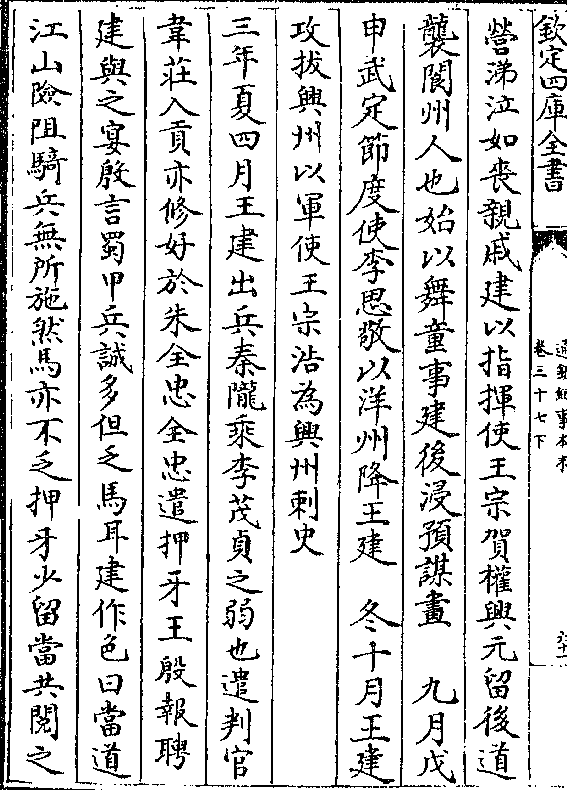 欽定四庫全書
通鑑紀事本末
卷三十七下
營涕泣如喪親戚建以指揮使王宗賀權興元留後道
襲閬州人也始以舞童事建後浸預謀畫　九月戊
申武定節度使李思敬以洋州降王建　冬十月王建
攻拔興州以軍使王宗浩為興州刺史
三年夏四月王建出兵秦隴乘李茂貞之弱也遣判官
韋莊入貢亦修好於朱全忠全忠遣押牙王殷報聘
建與之宴殷言蜀甲兵誠多但乏馬耳建作色曰當道
江山險阻騎兵無所施然馬亦不乏押牙少留當共閱之